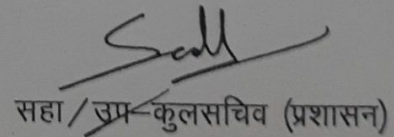 सहा/उप-कुलसचिव (प्रशासन)